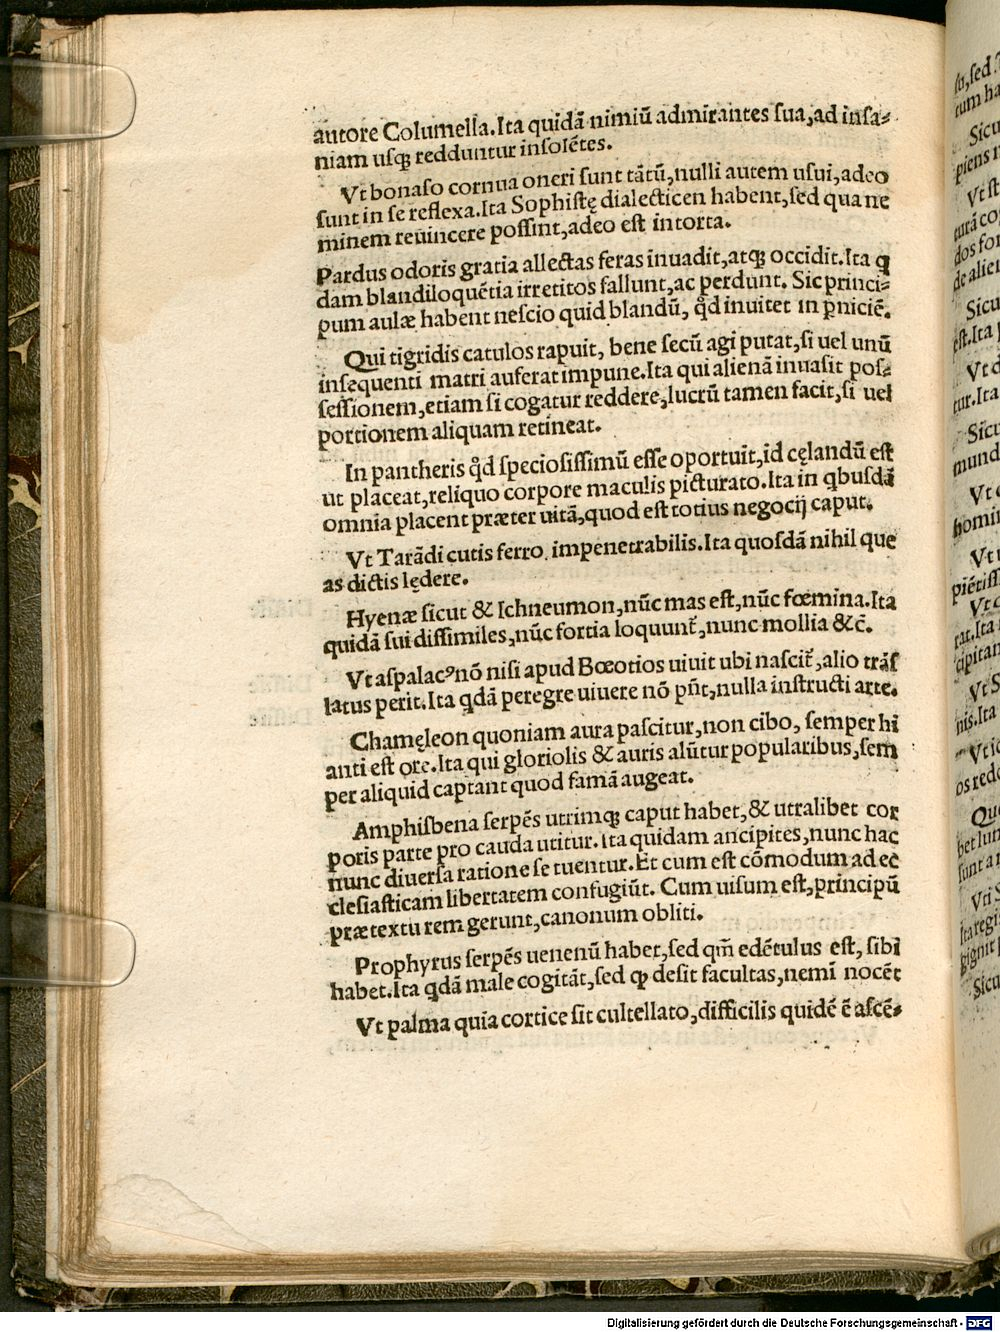 autore Columella. Ita quidã nimiũ admirantes sua, ad insa⸗
niam usqꝫ redduntur insolẽtes.
Vt bonaso cornua oneri sunt tãtũ, nulli autem usui, adeo
sunt in se reflexa. Ita Sophistę dialecticen habent, sed qua ne
minem reuincere possint, adeo est intorta.
Pardus odoris gratia allectas feras inuadit, atqꝫ occidit. Ita q
dam blandiloquẽtia irretitos fallunt, ac perdunt. Sic princi⸗
pum aulæ habent nescio quid blandũ, qd̓ inuitet in ꝑniciẽ.
Qui tigridis catulos rapuit, bene secũ agi putat, si uel unũ
insequenti matri auferat impune. Ita qui alienã inuasit pos⸗
sessionem, etiam si cogatur reddere, lucrũ tamen facit, si uel
portionem aliquam retineat.
In pantheris qd̓ speciosissimũ esse oportuit, id cęlandũ est
ut placeat, reliquo corpore maculis picturato. Ita in qbusdã
omnia placent præter uitã, quod est totius negocij caput.
Vt Tarãdi cutis ferro impenetrabilis. Ita quosdã nihil que
as dictis lędere.
Hyenæ sicut & Ichneumon, nũc mas est, nũc fœmina. Ita
quidã sui dissimiles, nũc fortia loquunt̃, nunc mollia &c̃.
Vt aspalacꝰ nõ nisi apud Bœotios uiuit ubi nascit̃, alio trãs
latus perit. Ita qdã peregre uiuere nõ pñt, nulla instructi arte.
Chamęleon quoniam aura pascitur, non cibo, semper hi
anti est ore. Ita qui gloriolis & auris alũtur popularibus, sem
per aliquid captant quod famã augeat.
Amphisbena serpẽs utrimqꝫ caput habet, & utralibet cor
poris parte pro cauda utitur. Ita quidam ancipites, nunc hac
nunc diuersa ratione se tuentur. Et cum est cõmodum ad ec
clesiasticam libertatem confugiũt. Cum uisum est, principũ
prætextu rem gerunt, canonum obliti.
Prophyrus serpẽs uenenũ habet, sed qm̃ edẽtulus est, sibi
habet. Ita qdã male cogitãt, sed ꝙ desit facultas, nemĩ nocẽt
Vt palma quia cortice sit cultellato, difficilis quidẽ ẽ ascẽ⸗
Digitalisierung gefördert durch die Deutsche Forschungsgemeinschaft - DFG